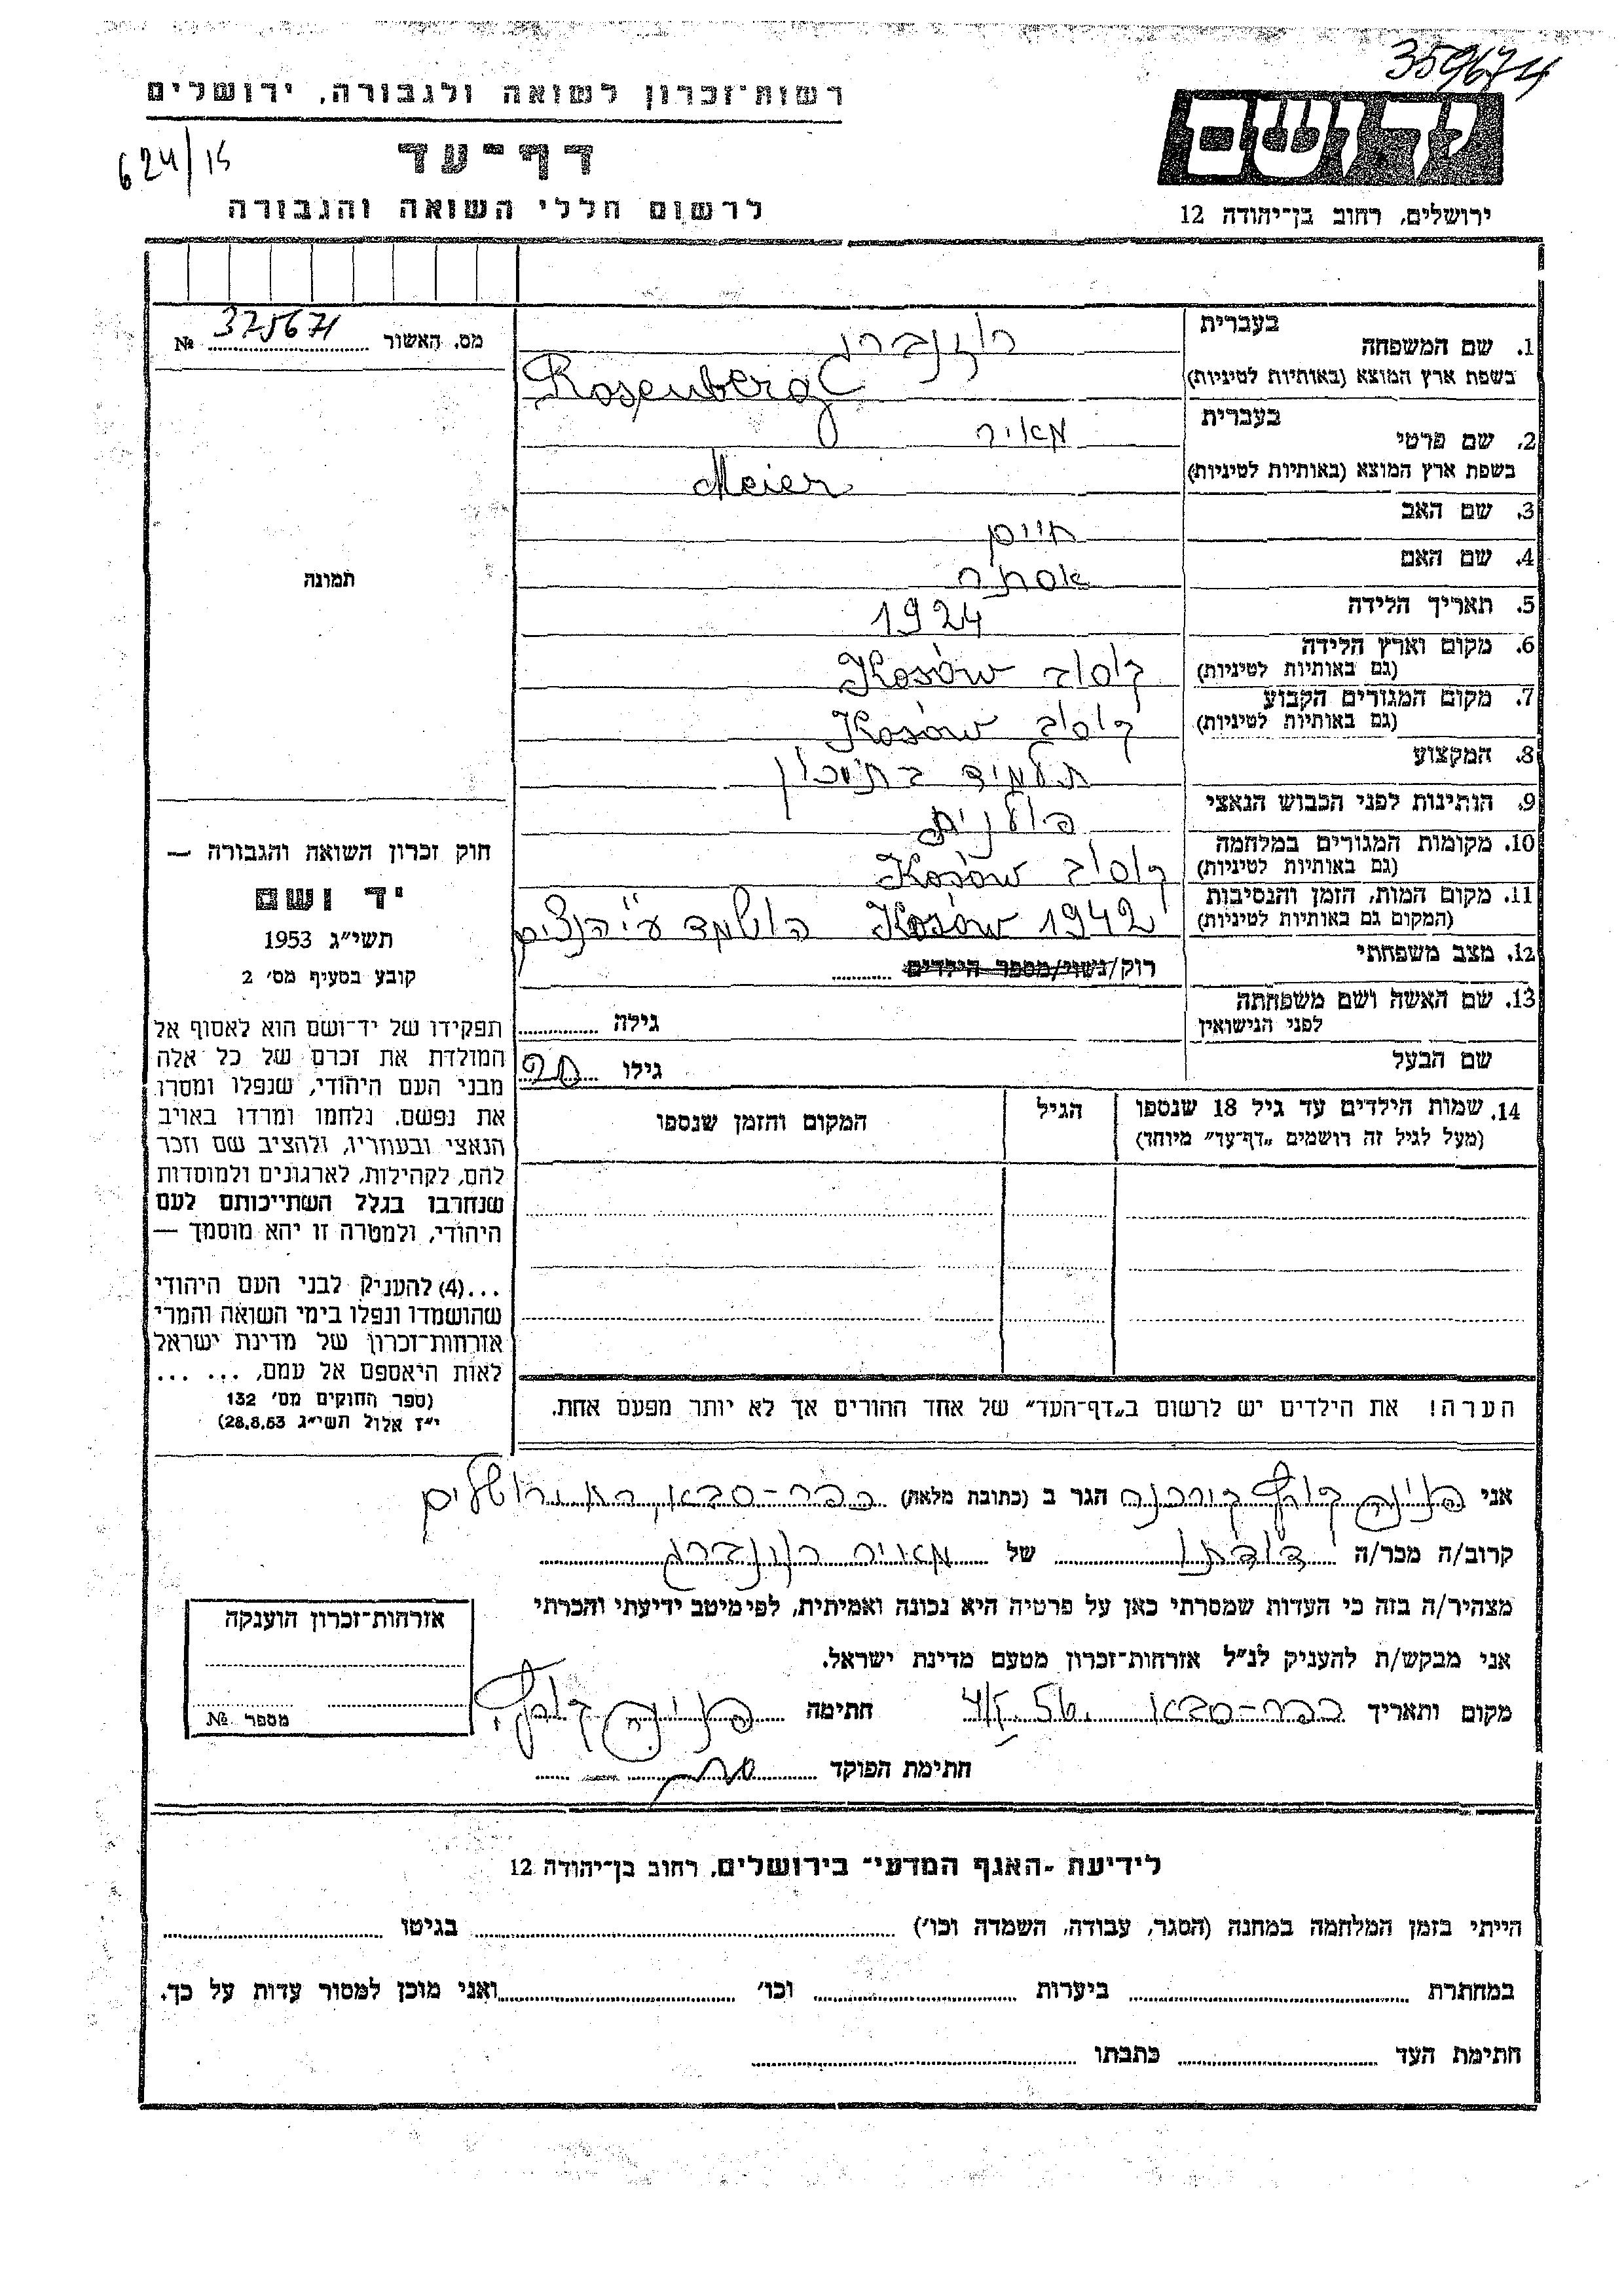 359674
רשות־זכרון לשואה ולגבורה, ירושלים
624/15
דף־עד
לרשום חללי השואה והגבורה
יד ושם
ירושלים, רחוב בן־יהודה 12
מס. האשור 375671 №
בעברית
1. שם המשפחה רוזנברג
בשפת ארץ המוצא (באותיות לטיניות) Rosenberg
בעברית
2. שם פרטי מאיר
בשפת ארץ המוצא (באותיות לטיניות) Meier
3. שם האב חיים
4. שם האם אסתר
5. תאריך הלידה 1924
6. מקום וארץ הלידה
(גם באותיות לטיניות) קוסוב Kosów
7. מקום המגורים הקבוע
(גם באותיות לטיניות) קוסוב Kosów
8. המקצוע תלמיד בתיכון
9. הנתינות לפני הכבוש הנאצי פולנית
10. מקומות המגורים במלחמה
(גם באותיות לטיניות) קוסוב Kosów
11. מקום המות, הזמן והנסיבות
(המקום גם באותיות לטיניות) 1942 Kosów הושמד ע"י הנצים
12. מצב משפחתי רוק/נשוי/מספר הילדים
13. שם האשה ושם משפחתה
לפני הנישואין גילה
שם הבעל גילו
14. שמות הילדים עד גיל 18 שנספו
(מעל לגיל זה רושמים „דף־עד" מיוחד)
הגיל
המקום והזמן שנספו
הערה! את הילדים יש לרשום ב„דף־העד" של אחד ההורים אך לא יותר מפעם אחת.
תמונה
חוק זכרון השואה והגבורה —
יד ושם
תשי"ג 1953
קובע בסעיף מס' 2
תפקידו של יד־ושם הוא לאסוף אל
המולדת את זכרם של כל אלה
מבני העם היהודי, שנפלו ומסרו
את נפשם, נלחמו ומרדו באויב
הנאצי ובעוזריו, ולהציב שם וזכר
להם, לקהילות, לארגונים ולמוסדות
שנחרבו בגלל השתייכותם לעם
היהודי, ולמטרה זו יהא מוסמך —
...(4) להעניק לבני העם היהודי
שהושמדו ונפלו בימי השואה והמרי
אזרחות־זכרון של מדינת ישראל
לאות היאספם אל עמם, ... ...
(ספר החוקים מס' 132
י"ז אלול תשי"ג 28.8.53)
אני פנינה קורן הגר ב (כתובת מלאה) כפר-סבא, ירושלים
קרוב/ה מכר/ה דודתו של מאיר רוזנברג
מצהיר/ה בזה כי העדות שמסרתי כאן על פרטיה היא נכונה ואמיתית, לפי מיטב ידיעתי והכרתי
אני מבקש/ת להעניק לנ"ל אזרחות־זכרון מטעם מדינת ישראל.
מקום ותאריך כפר-סבא 4/5.56 חתימה פנינה
חתימת הפוקד
אזרחות־זכרון הוענקה
מספר №
לידיעת „האגף המדעי" בירושלים, רחוב בן־יהודה 12
הייתי בזמן המלחמה במחנה (הסגר, עבודה, השמדה וכו') בגיטו
במחתרת ביערות וכו' ואני מוכן למסור עדות על כך.
חתימת העד כתבתו